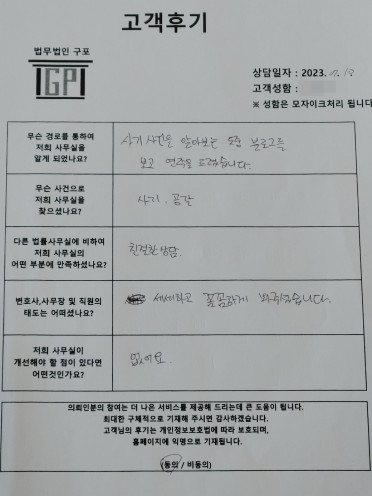 고객후기
법무법인 구포
IGPI
상담일자 : 2023.
고객성함 :
※ 성함은 모자이크처리 됩니다
무슨 경로를 통하여
저희 사무실을
알게 되었나요?
사기 사건을 알아보는 도중 블로그를
보고 연락을 드렸습니다.
무슨 사건으로
저희 사무실을
찾으셨나요?
사기. 공갈
다른 법률사무실에 비하여
저희 사무실의
어떤 부분에 만족하셨나요?
친절한 상담.
변호사,사무장 및 직원의
태도는 어떠셨나요?
세세하고 꼼꼼하게 봐주셨습니다.
저희 사무실이
개선해야 할 점이 있다면
어떤것인가요?
없어요.
의뢰인분의 참여는 더 나은 서비스를 제공해 드리는데 큰 도움이 됩니다.
최대한 구체적으로 기재해 주시면 감사하겠습니다.
고객님의 후기는 개인정보보호법에 따라 보호되며,
홈페이지에 익명으로 기재됩니다.
(동의 / 비동의)